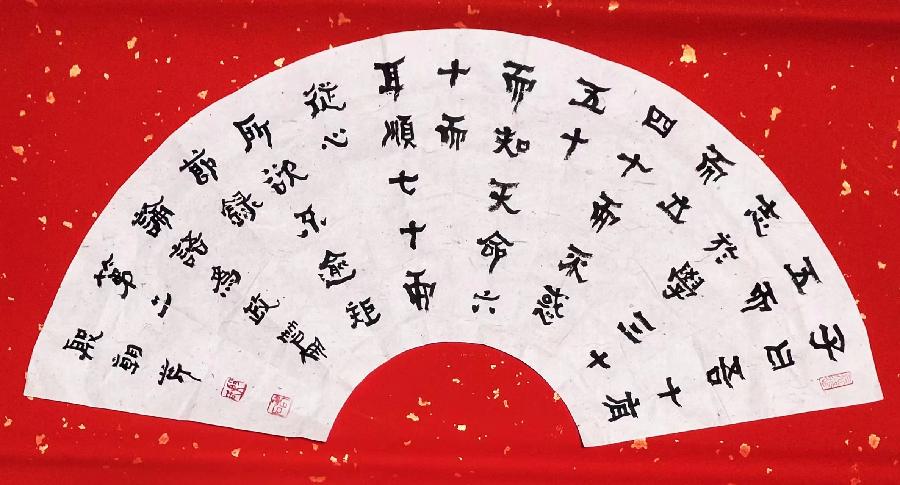 子曰吾十有
五而
志於學三十
而立
四十而不惑
五十
而知天命六
十而
耳順七十而
從心
所欲不逾矩
節錄
論語為政篇
第二
殷朝芹